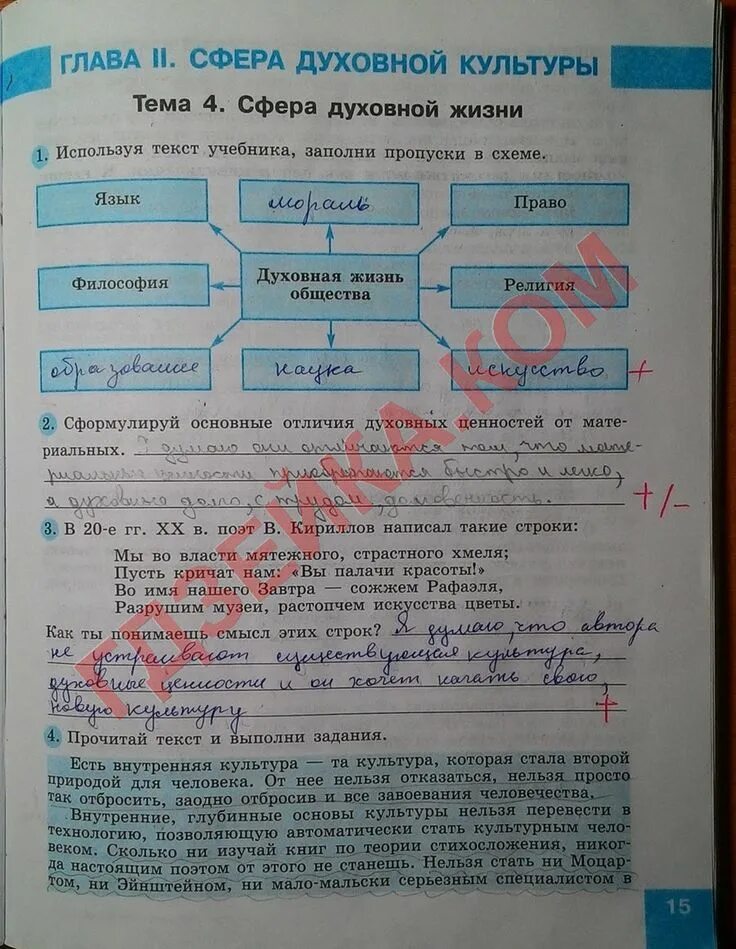 ГЛАВА II. СФЕРА ДУХОВНОЙ КУЛЬТУРЫ
Тема 4. Сфера духовной жизни
1. Используя текст учебника, заполни пропуски в схеме.
Язык
мораль
Право
Философия
Духовная жизнь
общества
Религия
образование
наука
искусство +
2. Сформулируй основные отличия духовных ценностей от мате-
риальных. Я думаю они отличаются тем, что мате-
риальные ценности приобретаются быстро и легко,
а духовные долго, с трудом, +/-
3. В 20-е гг. XX в. поэт В. Кириллов написал такие строки:
Мы во власти мятежного, страстного хмеля;
Пусть кричат нам: «Вы палачи красоты!»
Во имя нашего Завтра — сожжем Рафаэля,
Разрушим музеи, растопчем искусства цветы.
Как ты понимаешь смысл этих строк? Я думаю, что автора
не устраивают существующая культура,
духовные ценности и он хочет начать свою,
новую культуру +
4. Прочитай текст и выполни задания.
Есть внутренняя культура — та культура, которая стала второй
природой для человека. От нее нельзя отказаться, нельзя просто
так отбросить, заодно отбросив и все завоевания человечества.
Внутренние, глубинные основы культуры нельзя перевести в
технологию, позволяющую автоматически стать культурным чело-
веком. Сколько ни изучай книг по теории стихосложения, никог-
да настоящим поэтом от этого не станешь. Нельзя стать ни Моцар-
том, ни Эйнштейном, ни мало-мальски серьезным специалистом в
15
ГДЗЕЙКА.КОМ